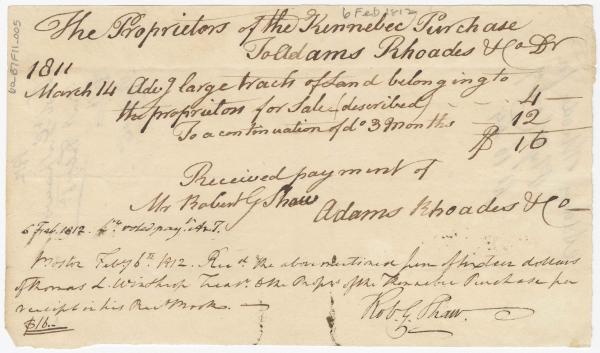 6 Feb 1812
The Proprietors of the Kennebec Purchase
To Adams Rhoades & Co Dr
1811
March 14 Adv.g large tracts of Land belonging to
the proprietors for Sale (described) - - 4-
To a continuation of do 3 Months 12
$ 16
Received payment of
Mr Robert G Shaw
Adams Rhoades & Co
6 Feb. 1812. voted pay.t
Boston Feb.y 6th 1812. Rec.d the above mentioned sum of sixteen dollars
of Thomas L. Winthrop Treas.r to the Prop.rs of the Kennebec Purchase per
receipt in his Rec.t Book.
$16.—
Rob. G. Shaw.